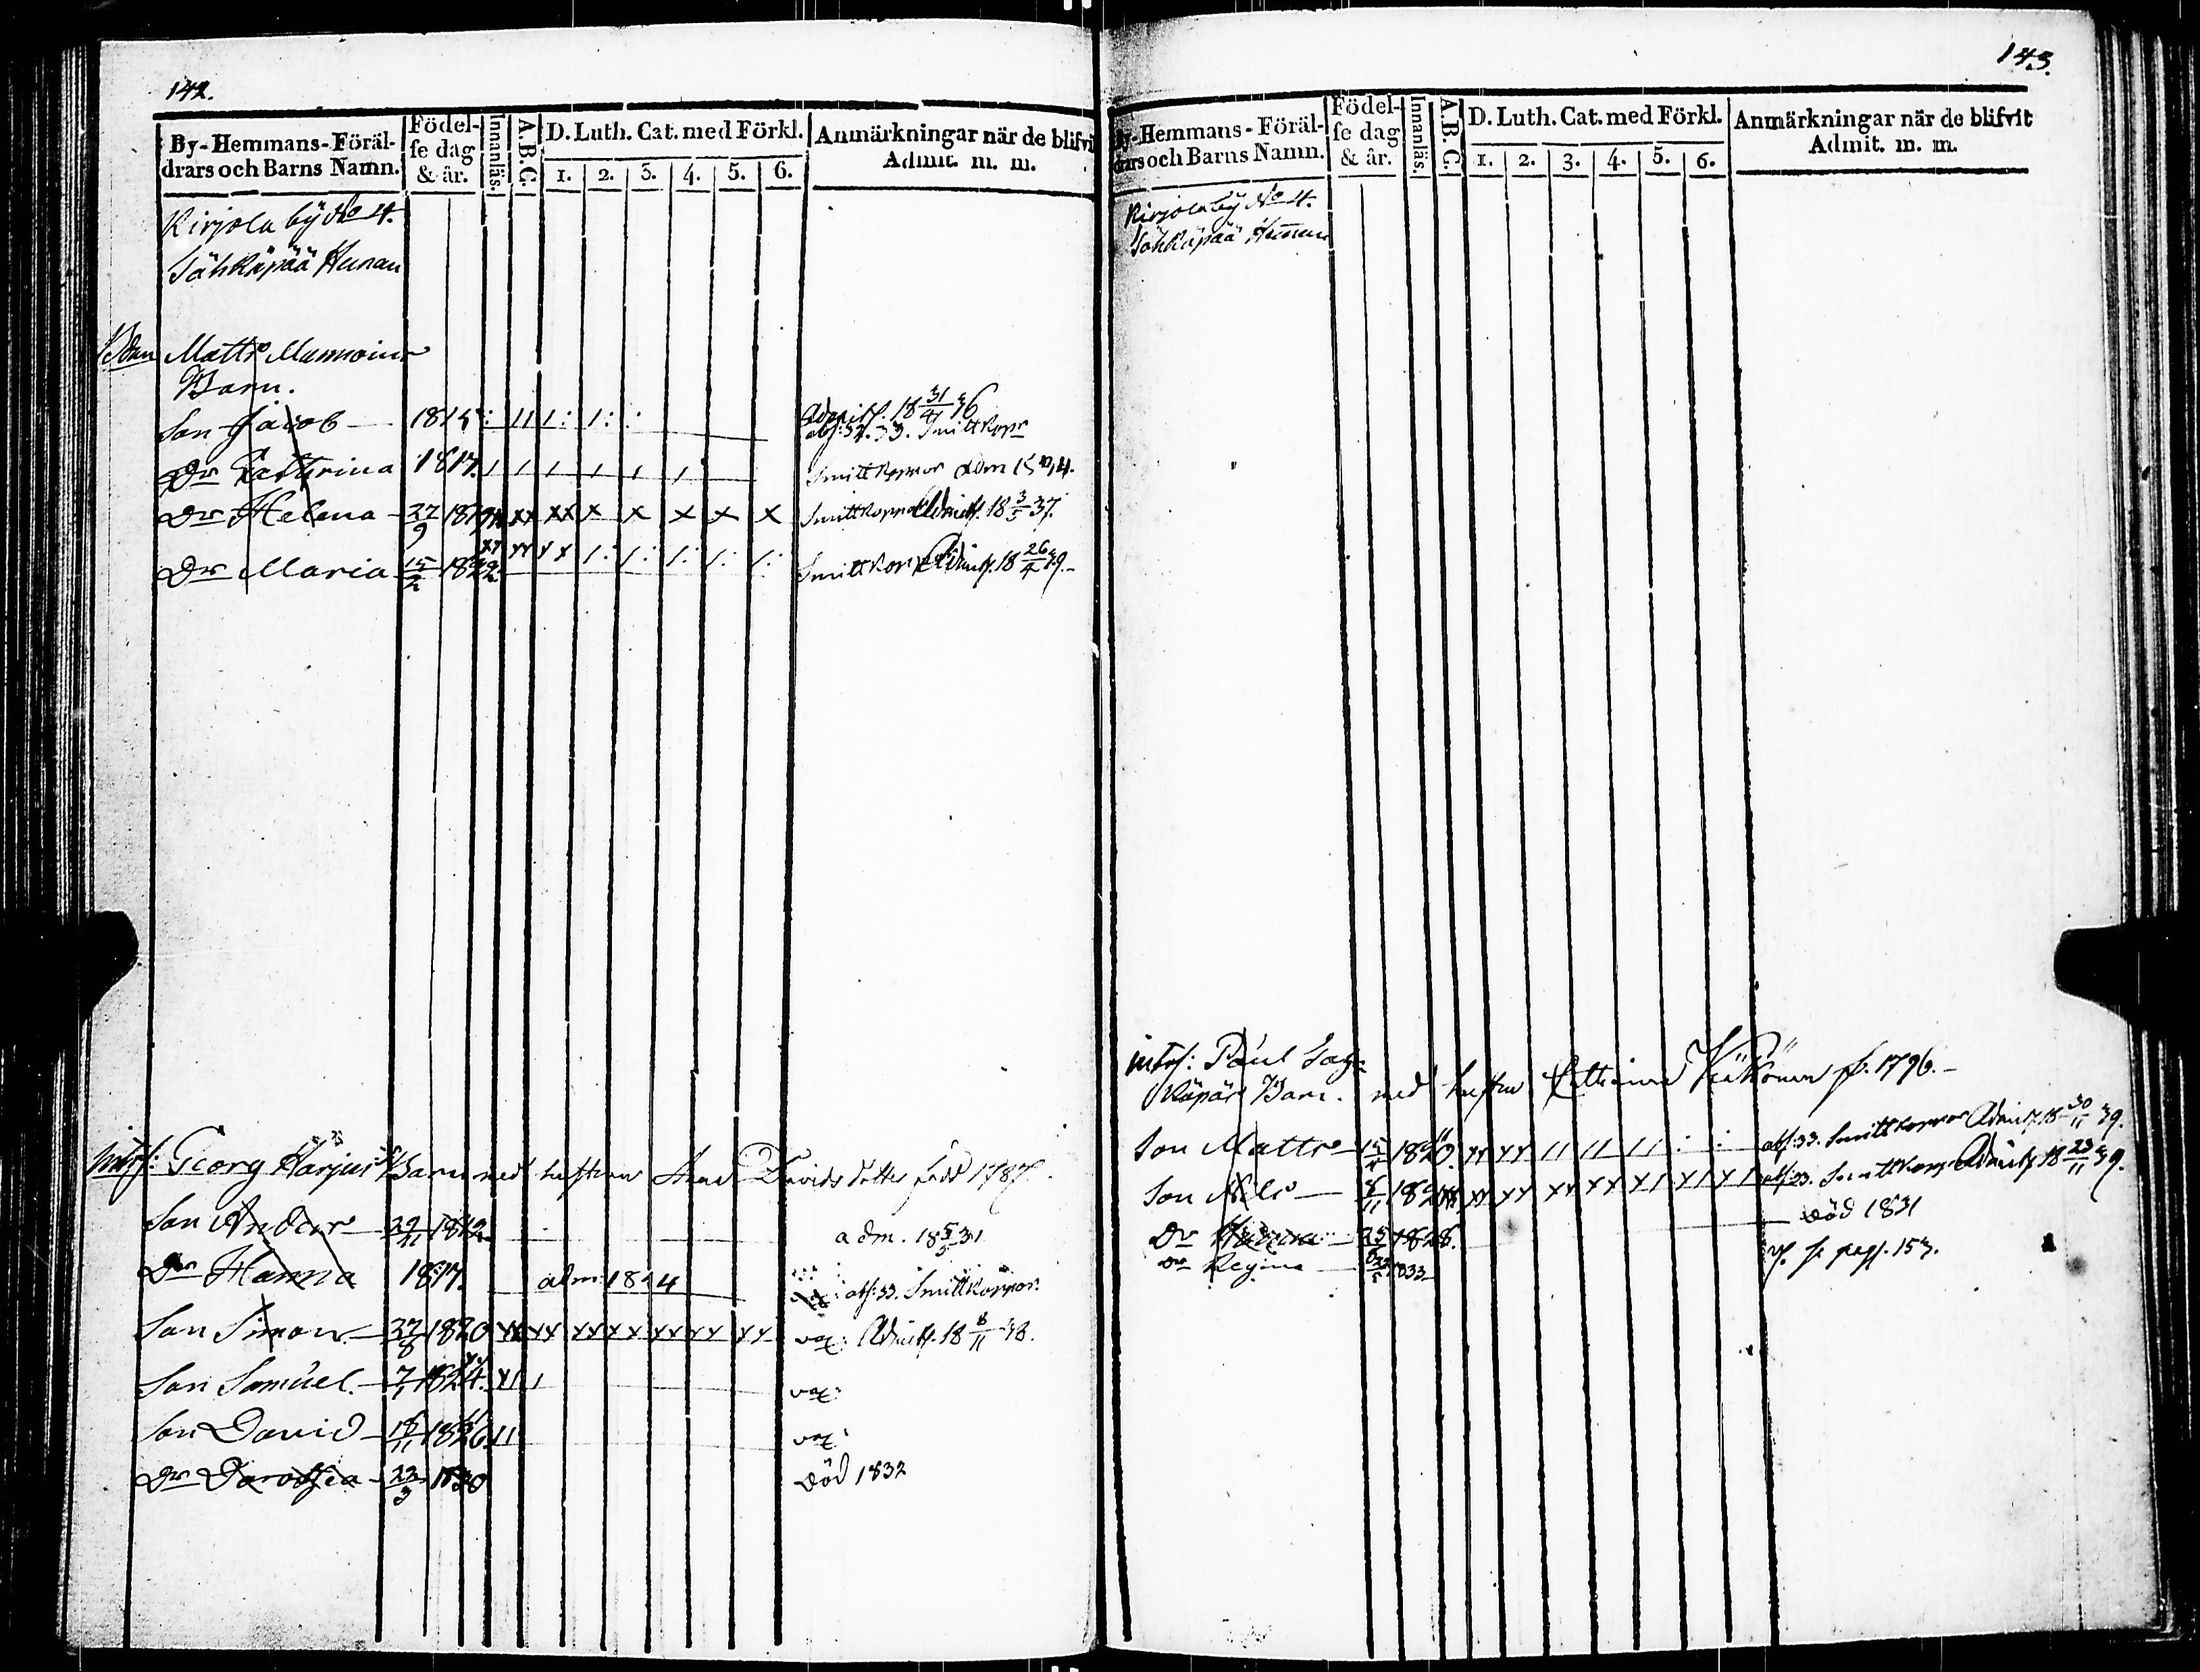 142.
By-Hemmans-Föräl-
drars och Barns Namn.
Födel-
se dag
& år.
Innanläs.
A.B.C.
D. Luth. Cat. med Förkl.
1. 2. 3. 4. 5. 6.
Anmärkningar när de blifvi
Admit. m. m.
Kirjola by No 4.
Matts
Barn.
Son Jacob 1815 Admitt. 18 31/4 36
abs: 32. 33. Smittkopr
Dr Cathrina 1817. Smittkoppor adm
Dr Helena 27/9 1819 Smittkopp Admitt. 18 3/5 37.
Dr Maria 15/2 1822 Smittkop Admitt. 18 26/4 39.
Inhys: Georg Harjus Barn med hustrun Anna Davids dotter född 1787.
Son Anders 29/11 1812 adm. 18 5/5 31
Dr Hanna 1817. adm 1834 abs: 33. Smittkoppor.
Son Simon 27/8 1820 vax: Admitt. 18 8/11 38.
Son Samuel 7/1 1824. vax:
Son David 18/11 1826 vax:
Dr Dorothea 22/3 1830 Död 1832
143.
By-Hemmans-Föräl-
drars och Barns Namn.
Födel-
se dag
& år.
Innanläs.
A.B.C.
D. Luth. Cat. med Förkl.
1. 2. 3. 4. 5. 6.
Anmärkningar när de blifvit
Admit. m. m.
Kirjola by No 4.
inhys: Paul
Barn. med hustru f. 1796.
Son Matts 15/4 1820. abs: 33. Smittkoppor Admitt. 18 30/11 39.
Son Nils 1821 abs: 33. Smittkopp Admitt. 18 23/11 39.
Dr 25 1828. Död 1831
Dr Regina 1833 pag. 153.